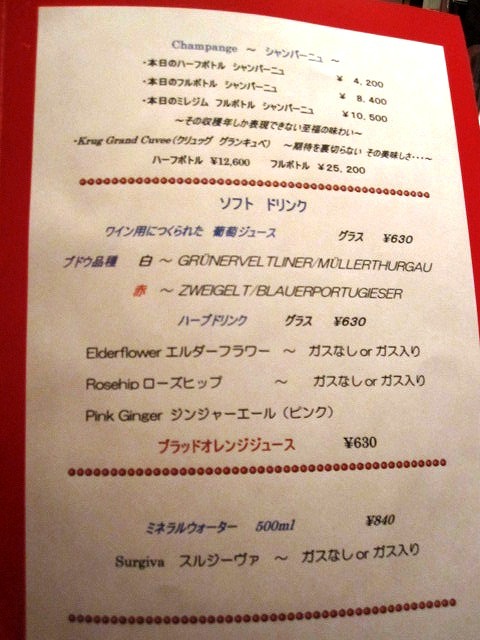 Champange ～ シャンパーニュ ～
・本日のハーフボトル シャンパーニュ ￥ 4,200
・本日のフルボトル シャンパーニュ ￥ 8,400
・本日のミレジム フルボトル シャンパーニュ ￥10,500
～その収穫年しか表現できない至福の味わい～
・Krug Grand Cuvee（クリュッグ グランキュベ） ～期待を裏切らない その美味しさ・・・～
ハーフボトル ￥12,600 フルボトル ￥25,200
ソフト ドリンク
ワイン用につくられた 葡萄ジュース グラス ￥630
ブドウ品種 白 ～ GRÜNERVELTLINER/MÜLLERTHURGAU
赤 ～ ZWEIGELT/BLAUERPORTUGIESER
ハーブドリンク グラス ￥630
Elderflower エルダーフラワー ～ ガスなし or ガス入り
Rosehip ローズヒップ ～ ガスなし or ガス入り
Pink Ginger ジンジャーエール（ピンク）
ブラッドオレンジジュース ￥630
ミネラルウォーター 500ml ￥840
Surgiva スルジーヴァ ～ ガスなし or ガス入り